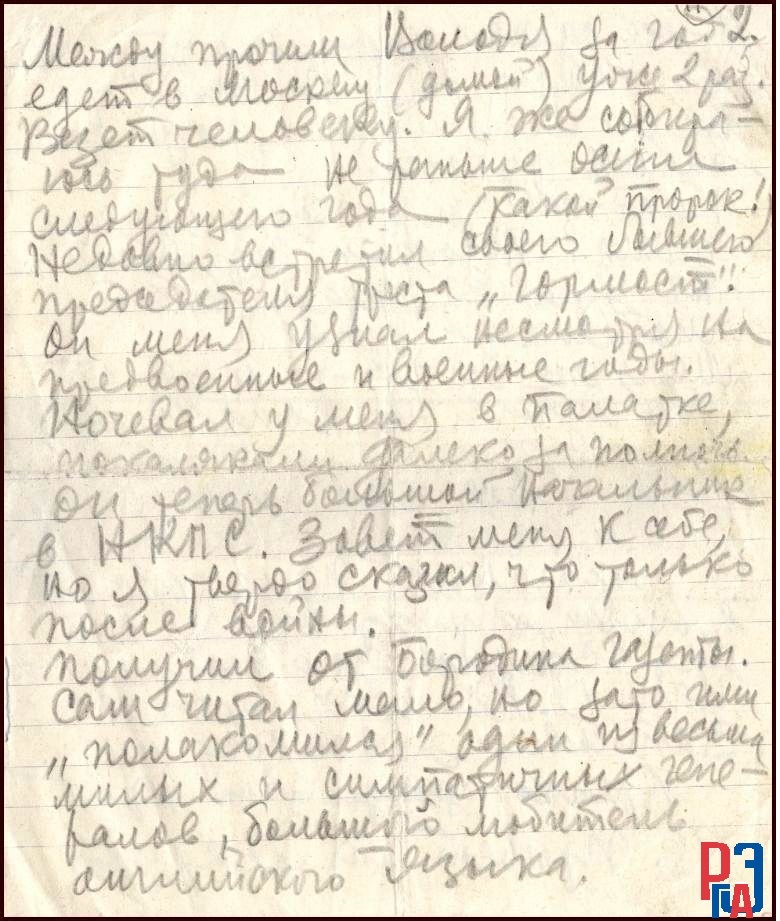 2.
Между прочим Володя за год
едет в Москву (домой) уже 2 раз.
Везет человеку. Я же собира-
юсь туда не раньше осени
следующего года (какой пророк!)
Недавно встретил своего бывшего
председателя треста „Гормост".
Он меня узнал несмотря на
предвоенные и военные годы.
Ночевал у меня в палатке,
покалякали далеко за полночь.
Он теперь большой начальник
в НКПС. Зовет меня к себе,
но я твердо сказал, что только
после войны.
Получил от Бородина газеты.
Сам читал мало, но зато ими
„полакомился" один из весьма
милых и симпатичных гене-
ралов, большой любитель
английского языка.
РГАЭ